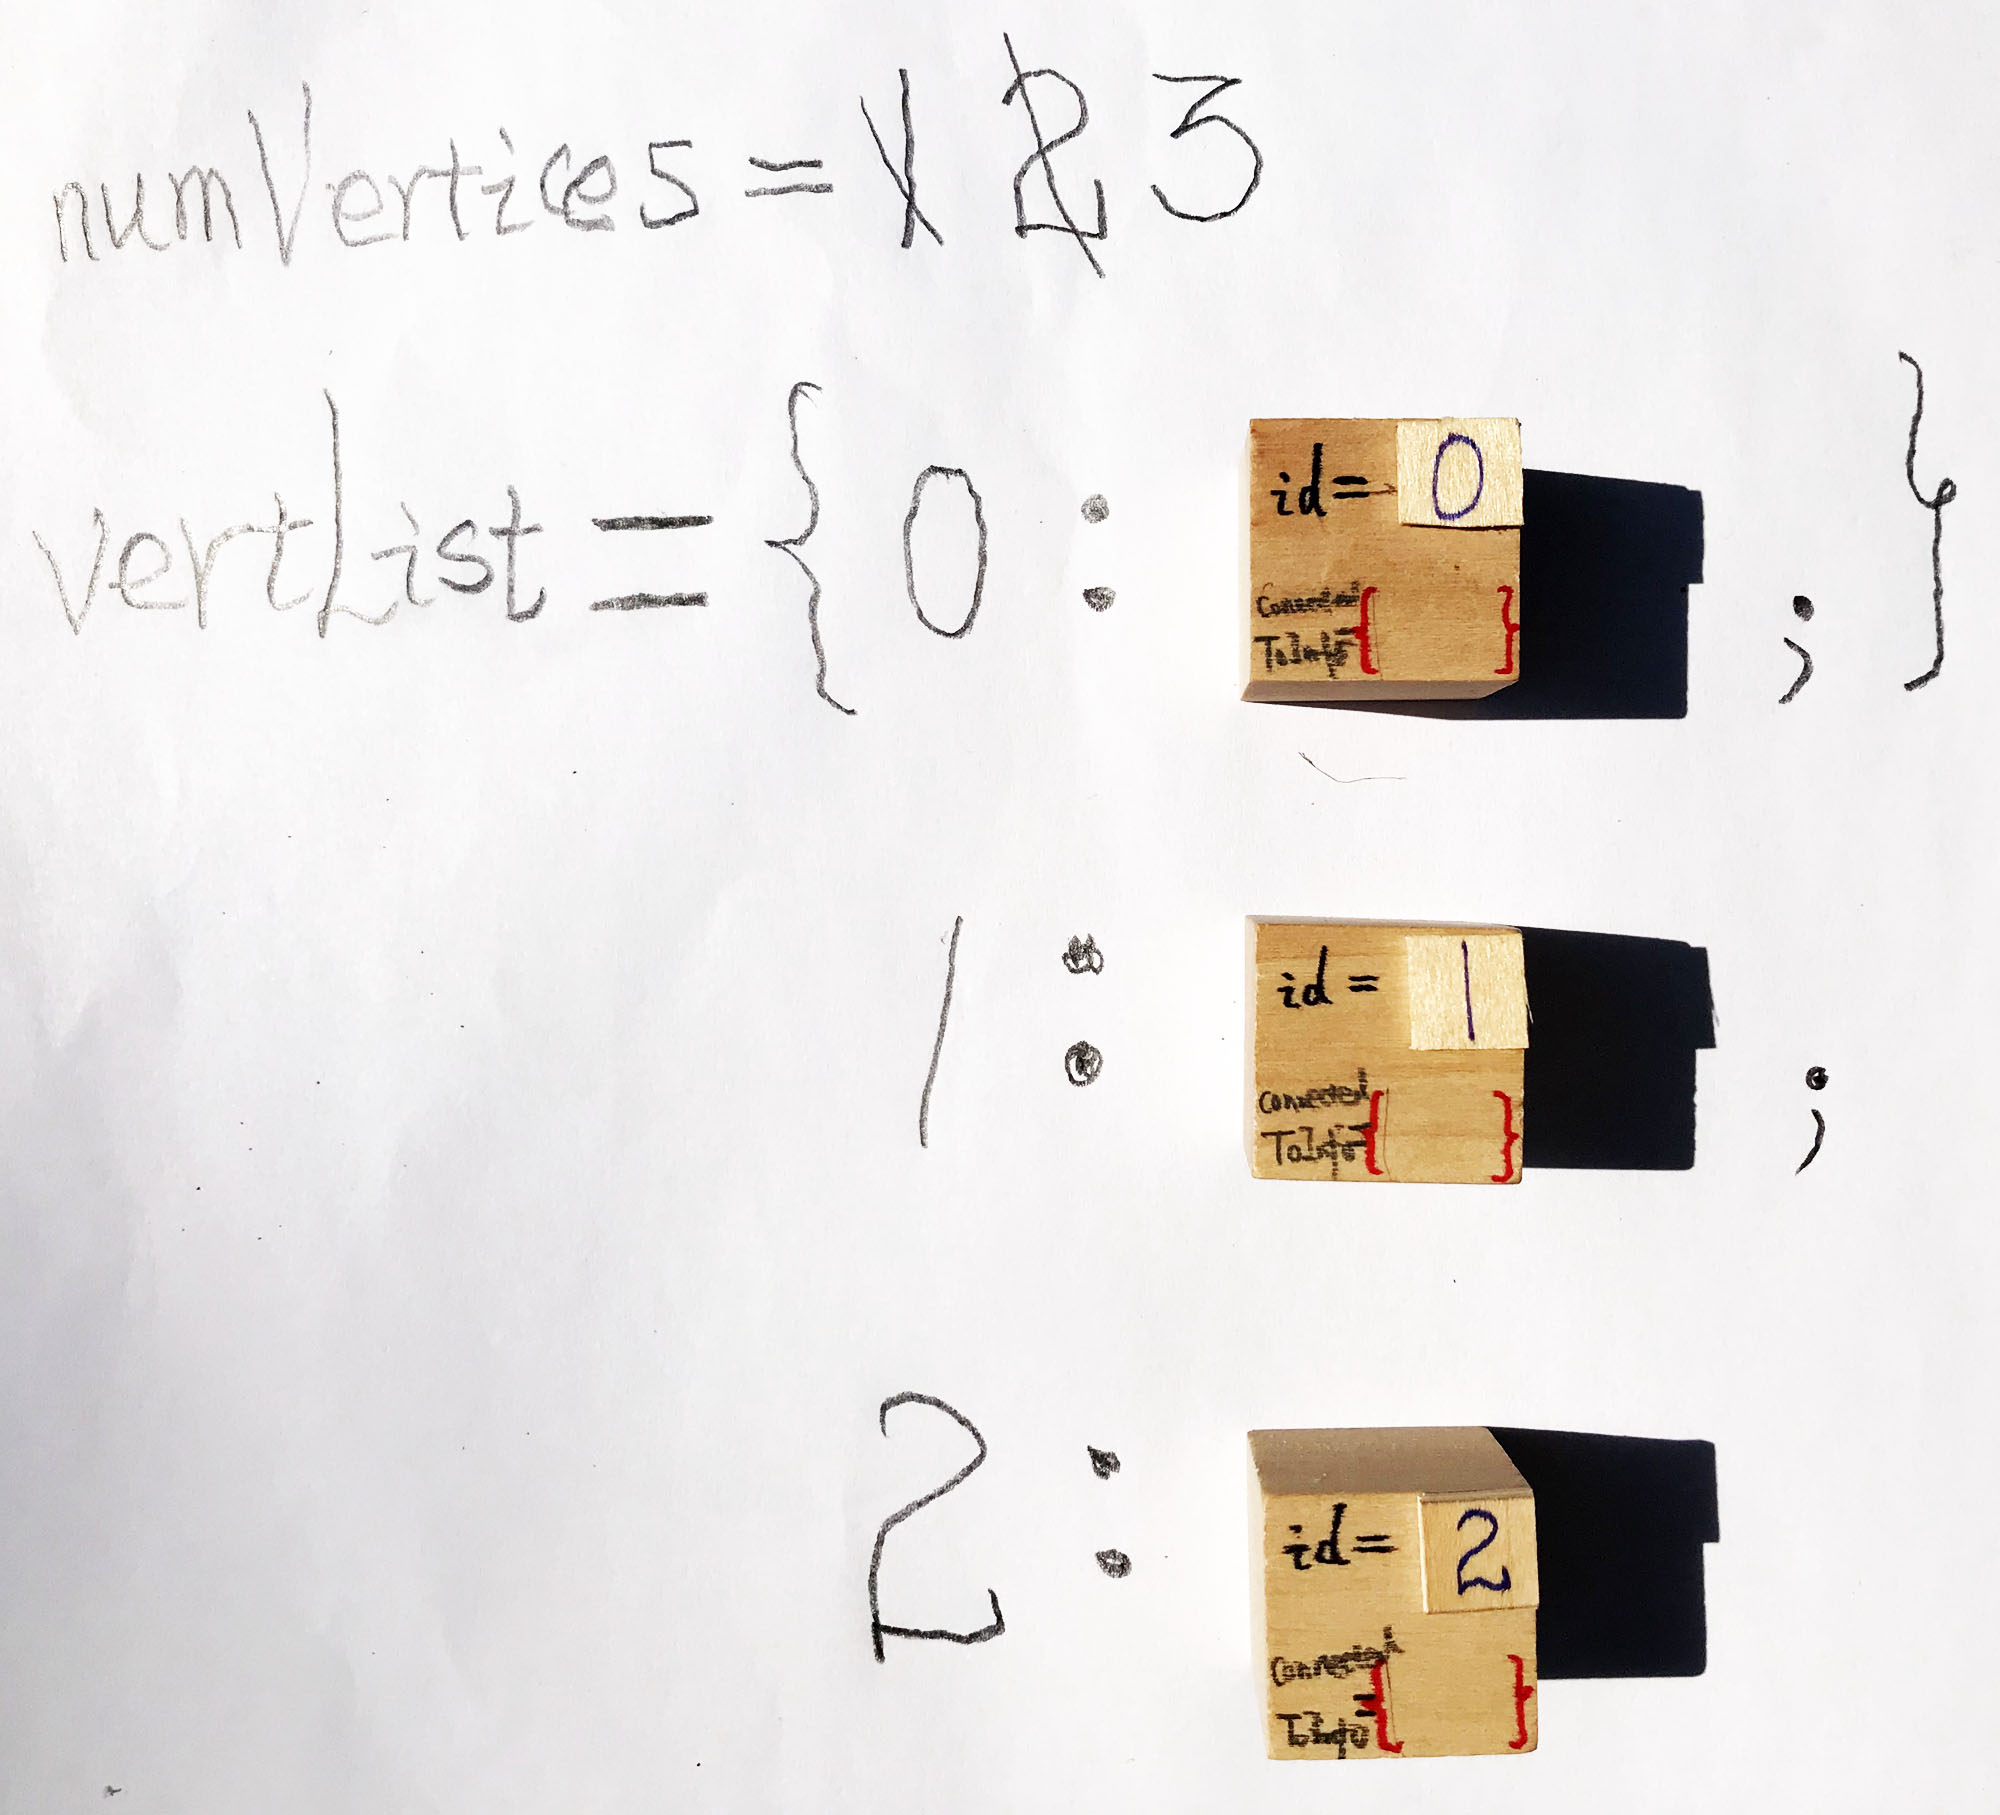 numVertices = 1 2 3
vertList = { 0 : id= 0 ; }
Connected { }
ToInfo
1 : id= 1 ;
connected { }
ToInfo
2 : id= 2
Connected { }
ToInfo